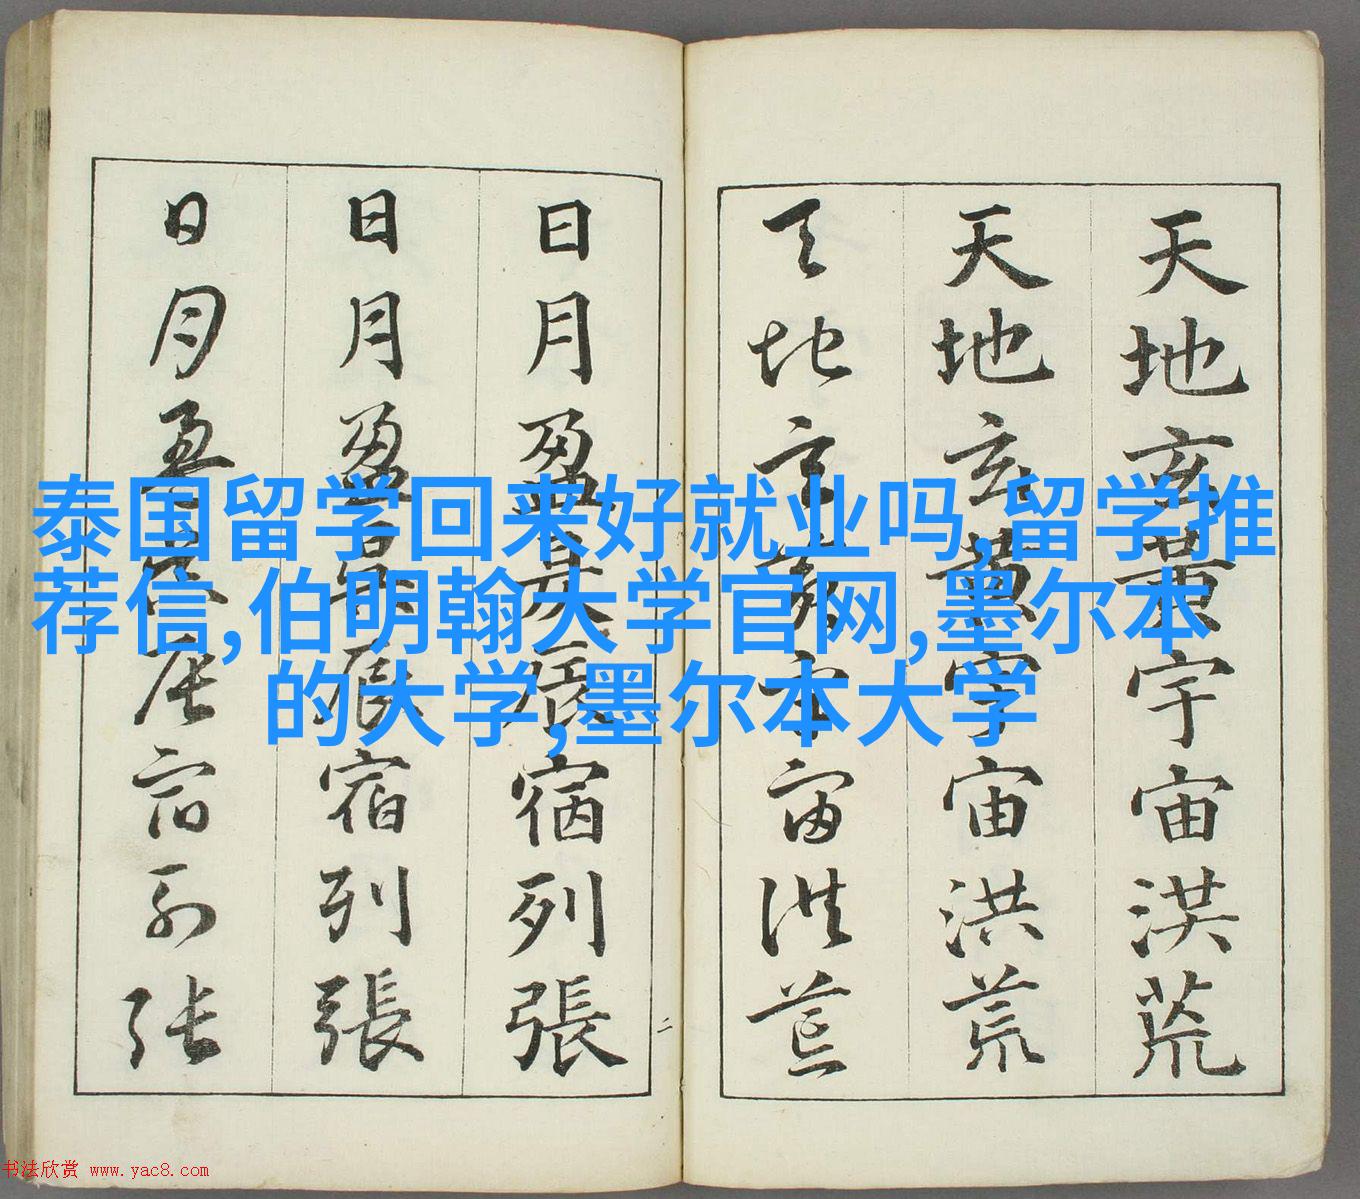 天地玄黄宇宙洪荒
天地玄黄宇宙洪荒
天地玄黄宇宙洪荒
日月盈昃辰宿列張
日月盈昃辰宿列張
日月盈昃辰宿列張
二
泰国留学回来好就业吗,留学推
荐信,伯明翰大学官网,墨尔本
的大学,墨尔本大学
书法欣赏 www.yac8.com